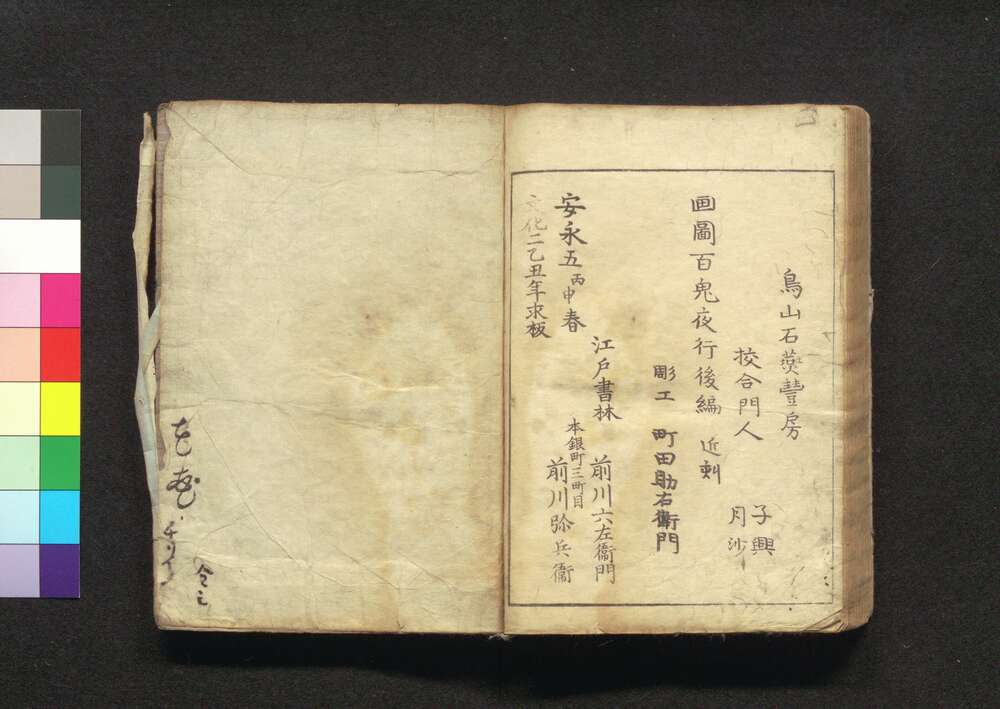 鳥山石燕豐房
校合門人
子興
月沙
画圖百鬼夜行後編 近刻
彫工 町田助右衛門
江戸書林
前川六左衛門
本銀町三町目
前川弥兵衛
安永五丙申春
文化二乙丑年求板